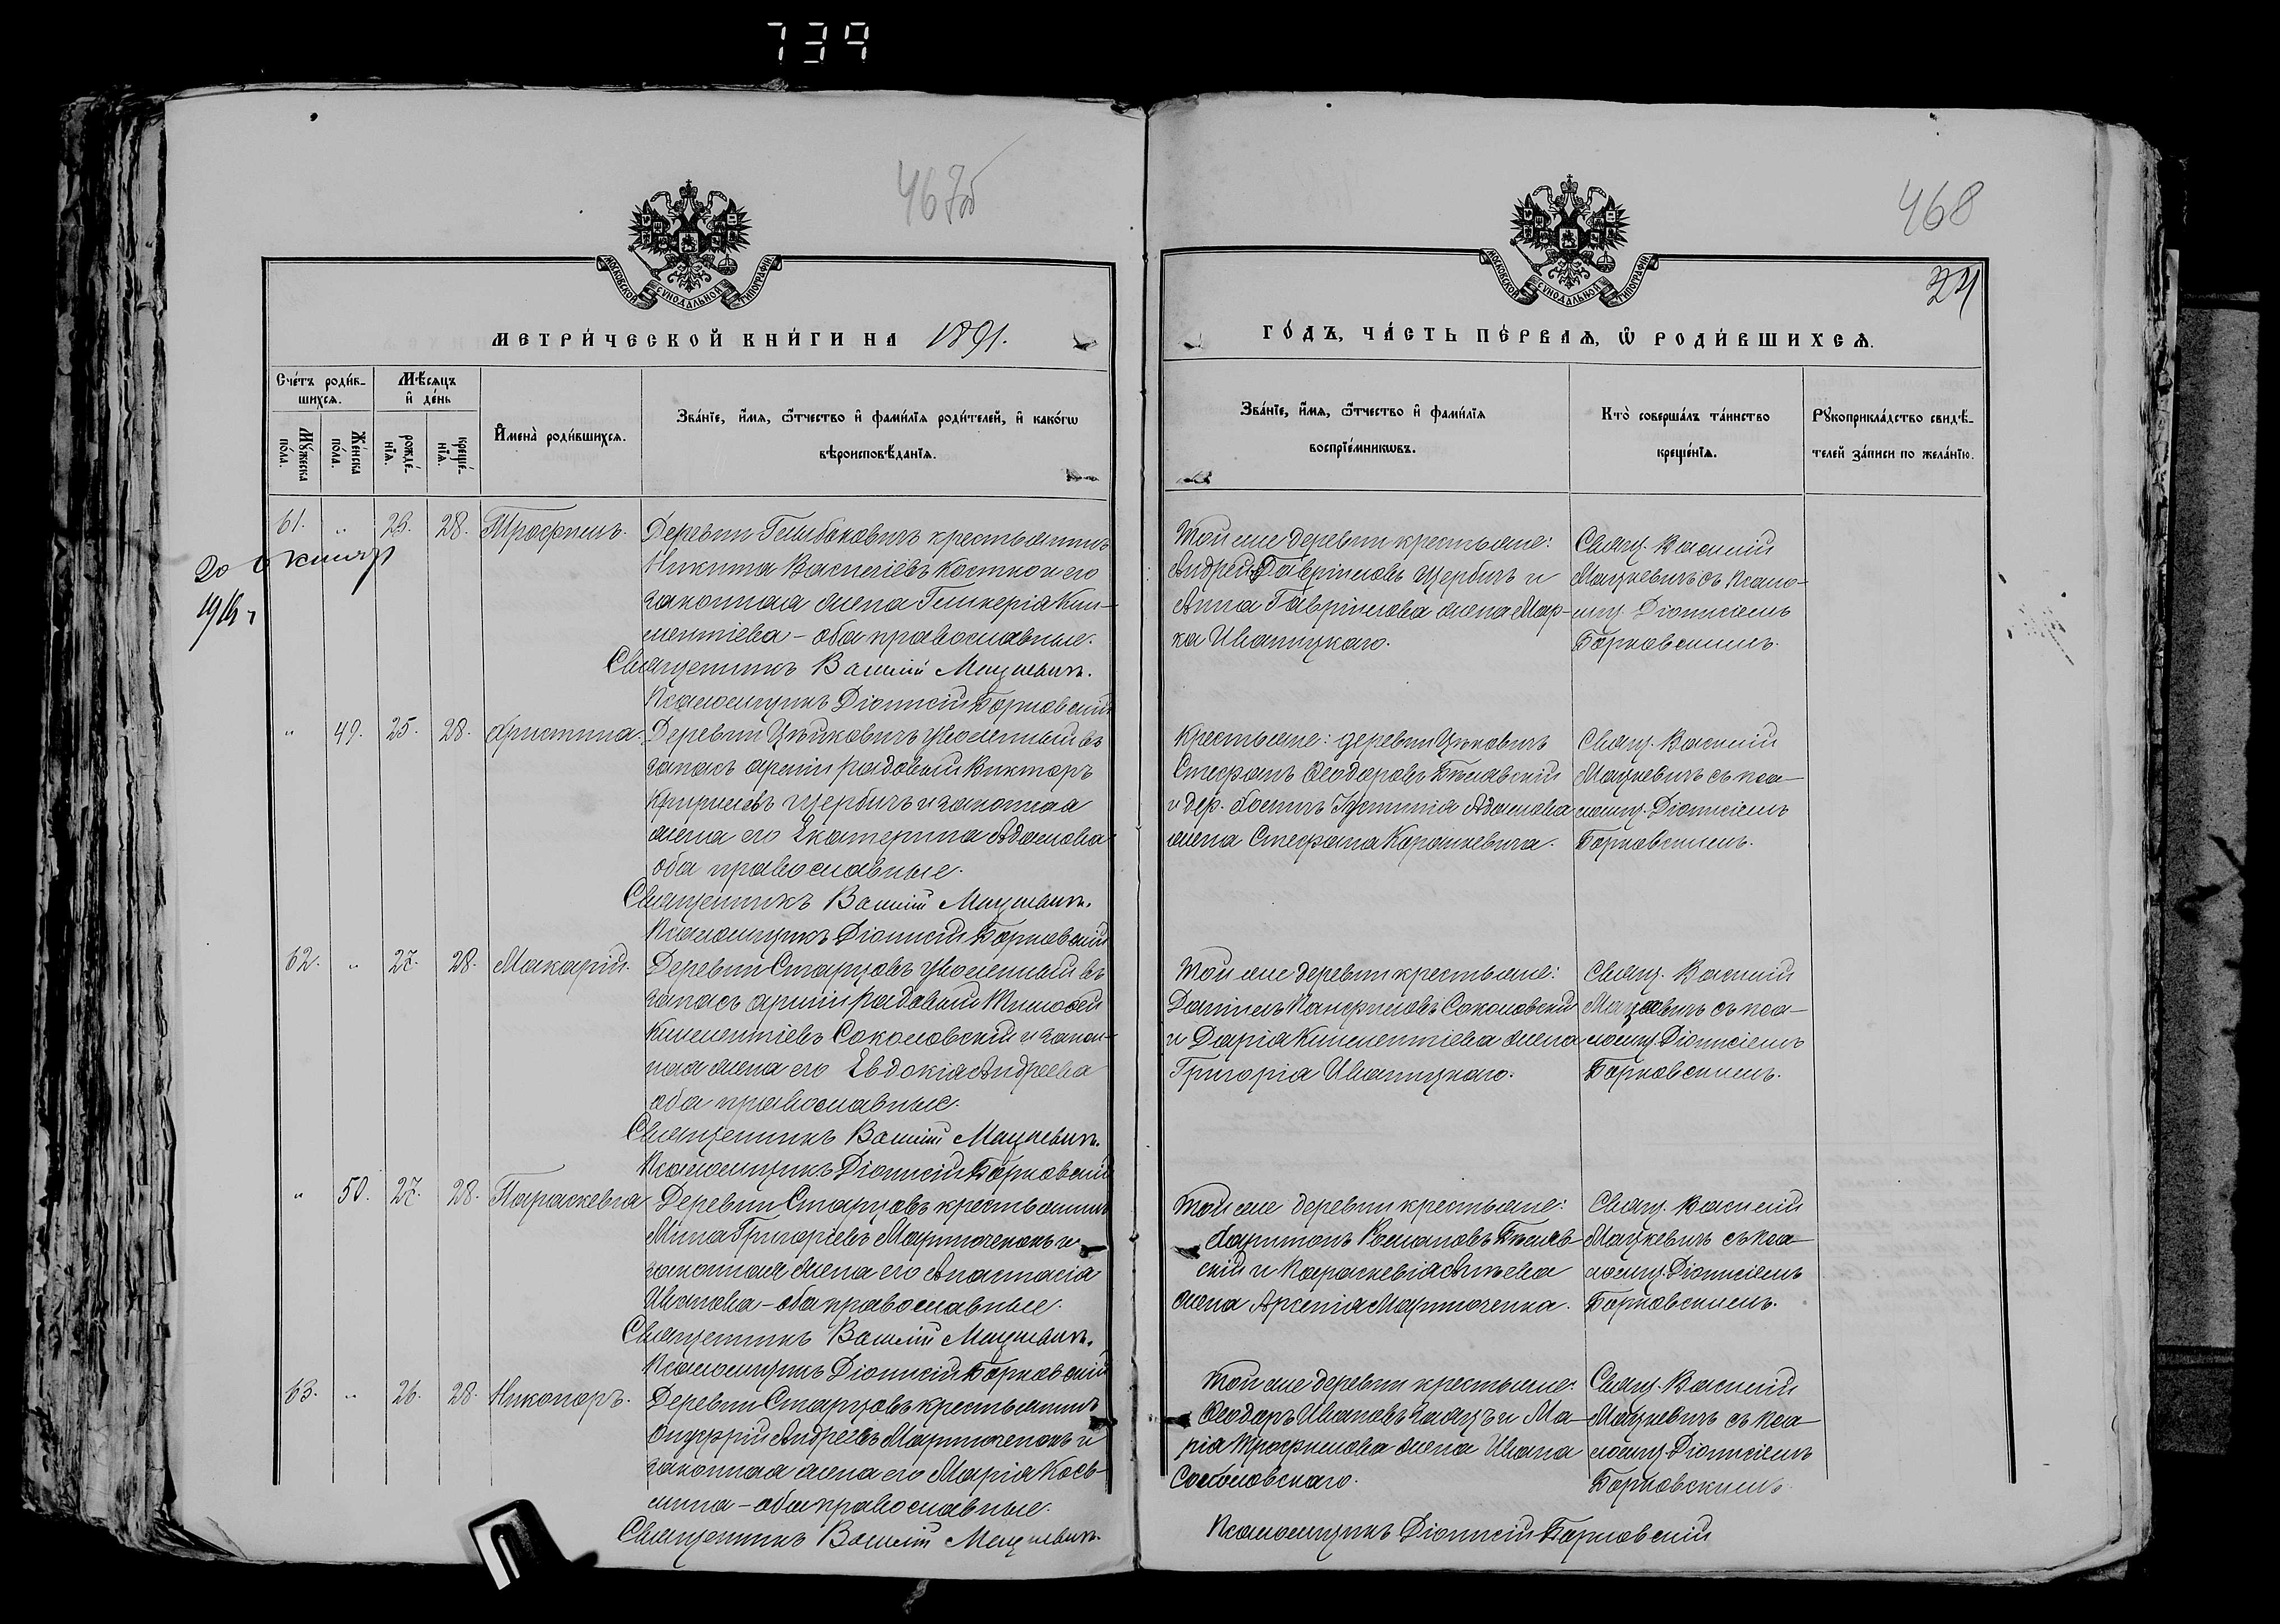 739
467об
468
24
МОСКОВСКОЙ СѴНОДАЛЬНОЙ ТИПОГРАФІИ
МОСКОВСКОЙ СѴНОДАЛЬНОЙ ТИПОГРАФІИ
МЕТРИ́ЧЕСКОЙ КНИ́ГИ НА 1891.
ГО́ДЪ, ЧА́СТЬ ПЕ́РВАѦ, Ѡ҆ РОДИ́ВШИХСѦ.
Сче́тъ роди́в-
шихсѧ.
Мꙋ́жеска
по́ла.
Же́нска
по́ла.
Мѣ́сѧцъ
и҆ де́нь
рожде́-
нїѧ.
креще́-
нїѧ.
И҆мена̀ роди́вшихсѧ.
Зва́нїе, и҆́мѧ, ѻ҆́тчество и҆ фами́лїѧ роди́телей, и҆ како́гѡ
вѣроисповѣ́данїѧ.
Зва́нїе, и҆́мѧ, ѻ҆́тчество и҆ фами́лїѧ
воспрїе́мникѡвъ.
Кто̀ соверша́лъ та́инство
креще́нїѧ.
Рꙋкоприкла́дство свидѣ́-
телей за́писи по жела́нїю.
61. „ 23. 28. Трофимъ.
20 октяр
1916 г
Деревни крестьянинъ
Никита Василіевъ Костко и его
законная жена Гликерія Кли-
ментіева – оба православные.
Священникъ Василій Мацкевичъ.
Псаломщикъ Діонисій Борковскій
Той же деревни крестьяне:
Андрей Гавріиловъ Щербичъ и
Анна Гавріилова жена Мар-
ка Иваницкаго.
Свящ. Василій
Мацкевичъ съ псало-
мщ. Діонисіемъ
Борковскимъ.
„ 49. 25. 28. Христина.
Деревни уволенный въ
запасъ арміи рядовый Викторъ
Кирилловъ Щербичъ и законная
жена его Екатерина Адамова
оба православные.
Священникъ Василій Мацкевичъ.
Псаломщикъ Діонисій Борковскій
Крестьяне: деревни
Стефанъ Ѳеодоровъ Бѣлявскій
и дер. Іустинія Адамова
жена Стефана Корзакевича.
Свящ. Василій
Мацкевичъ съ пса-
ломщ. Діонисіемъ
Борковскимъ.
62. „ 27. 28. Макарій.
Деревни Старцовъ уволенный въ
запасъ арміи рядовый Тимоѳей
Климентіевъ Соколовскій и закон-
ная жена его Евдокія Андреева
оба православные.
Священникъ Василій Мацкевичъ.
Псаломщикъ Діонисій Борковскій
Той же деревни крестьяне:
Даніилъ Панфиловъ Соколовскій
и Дарія Климентіева жена
Григорія Иваницкаго.
Свящ. Василій
Мацкевичъ съ пса-
ломщ. Діонисіемъ
Борковскимъ.
„ 50. 27. 28. Параскевия
Деревни Старцовъ крестьянинъ
Мина Григоріевъ Мартюченокъ и
законная жена его Анастасія
Иванова – оба православные.
Священникъ Василій Мацкевичъ.
Псаломщикъ Діонисій Борковскій
Той же деревни крестьяне:
Харитонъ Романовъ Бѣляв-
скій и Параскевія
жена Арсенія Мартюченка.
Свящ. Василій
Мацкевичъ съ пса-
ломщ. Діонисіемъ
Борковскимъ.
63. „ 26. 28. Никоноръ.
Деревни Старцовъ крестьянинъ
Онуфрій Андреевъ Мартюченокъ и
законная жена его Марія Кось-
мина – оба православные.
Священникъ Василій Мацкевичъ.
Той же деревни крестьяне:
Ѳеодоръ Ивановъ Заяцъ и Ма-
рія Трофимова жена Ивана
Соколовскаго.
Свящ. Василій
Мацкевичъ съ пса-
ломщ. Діонисіемъ
Борковскимъ
Псаломщикъ Діонисій Борковскій